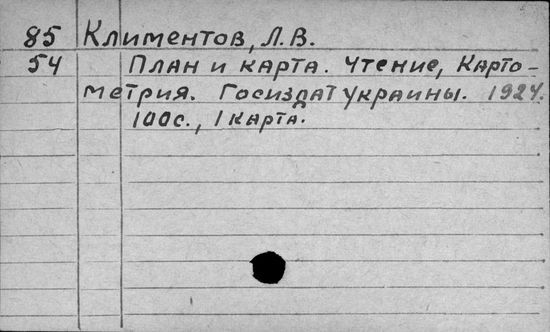 85 Климентов, Л.В.
54 План и карта. Чтение, Карто-
метрия. Госиздат украины. 1924.
100с., 1 карта.